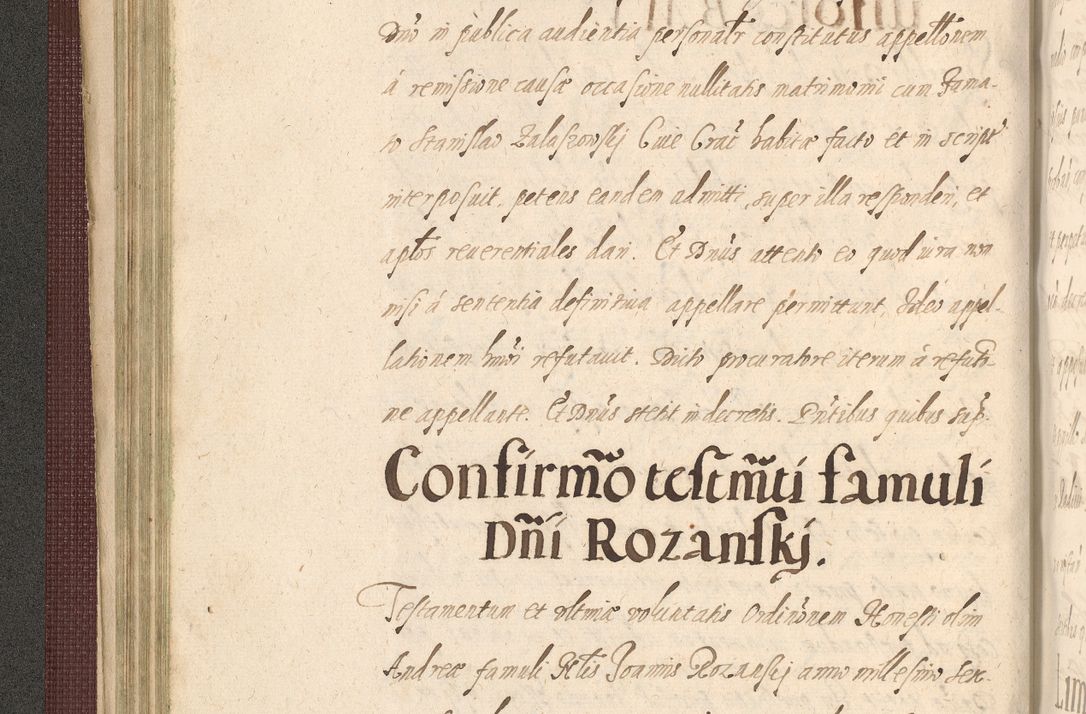 Dño in publica audientia personalr constitutus appellõnem
á remissione causæ occasione nullitatis matrimonii cum Fama-
to Stanislao Zalaszowskj Cuie Crac̃ habitæ facto et in script̃
interposuit, petens eandem admitti, super illa responderi, et
aptos reverentiales dari. Et Dnũs attento eo quod iura non
nisi á sententia definitiua appellare permittunt, Ideo appel-
lationem hmõi refutauit. Dicto procuratore iterum á refutõ-
ne appellante. Et Dnũs stetit in decretis. Pñtibus quibus sup̃.
Confirmõ testm̃ti famuli
Dñi Rozanskj.
Testamentum et vltimæ voluntatis Ordinõnem Honesti olim
Andreæ famuli Nlis Joannis Rozanskj anno millesimo sex-